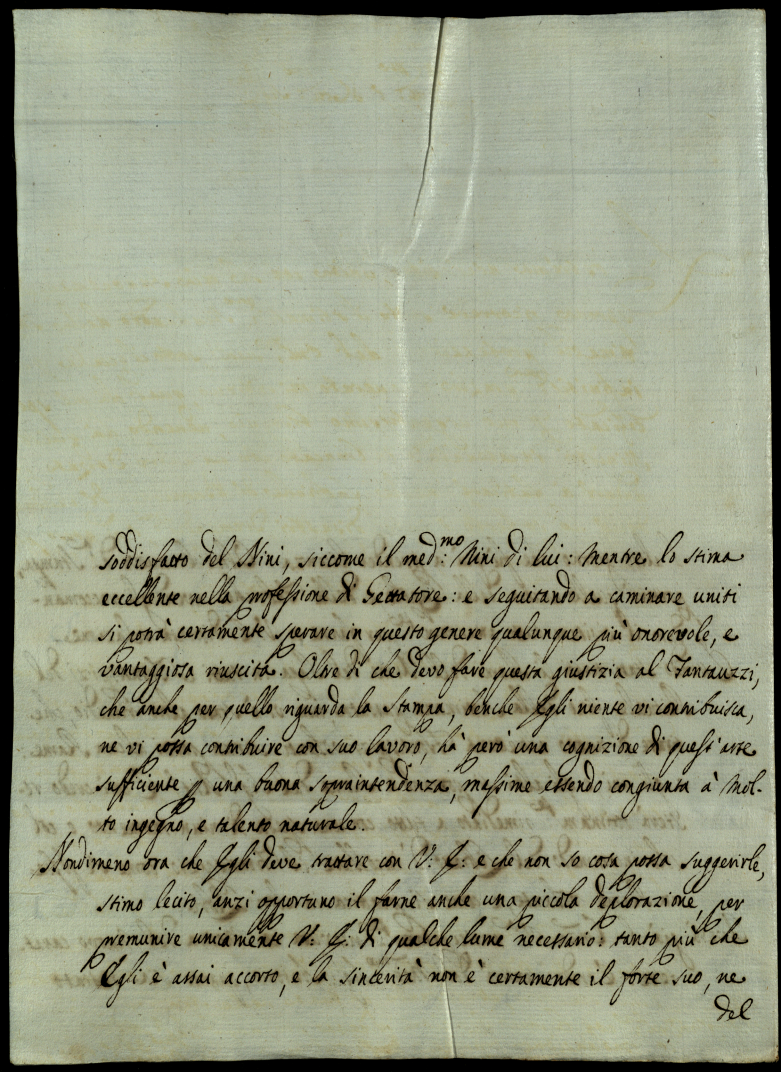 soddisfatto del Nini, siccome il med:mo Nini di lui: mentre lo stima
eccellente nella professione di Gettatore: e seguitando a caminare uniti
si potrà certamente sperare in questo genere qualunque più onorevole, e
vantaggiosa riuscita. Oltre di che devo fare questa giustizia al Fantauzzi,
che anche per quello riguarda la Stampa, benche Egli niente vi contribuisca,
ne vi possa contribuire con suo lavoro, hà però una cognizione di quest'arte
sufficiente p una buona sopraintendenza, massime essendo congiunta à mol-
to ingegno, e talento naturale.
Nondimeno ora che Egli deve trattare con V: E: e che non so cosa possa suggerirle,
stimo lecito, anzi opportuno il farne anche una piccola deplorazione, per
premunire unicamente V: E: di qualche lume necessario: tanto più che
Egli è assai accorto, e la sincerità non è certamente il forte suo, ne
del